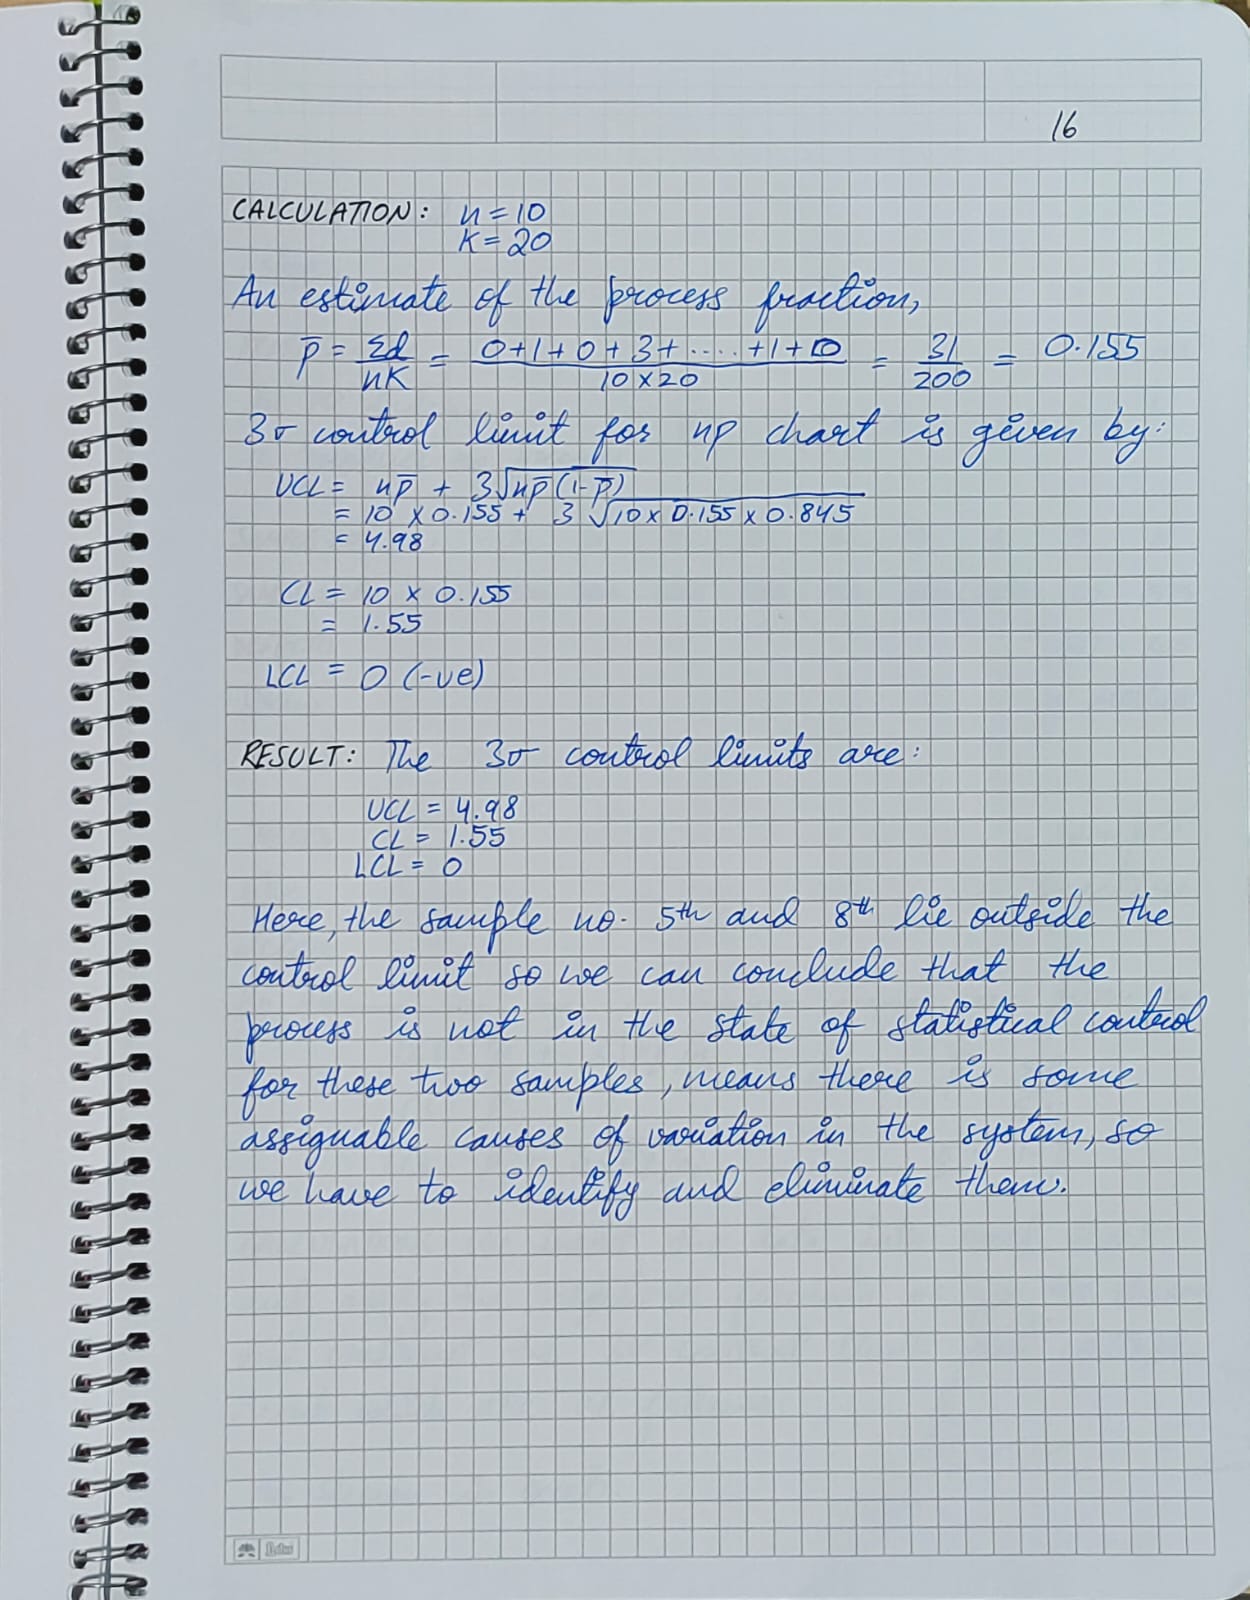 16
CALCULATION: n = 10
K = 20
An estimate of the process fraction,
p̅ = Σd/nK = 0+1+0+3+.....+1+0/10×20 = 31/200 = 0.155
3σ control limit for np chart is given by:
UCL = np̅ + 3√np̅(1-p̅)
= 10 × 0.155 + 3 √10 × 0.155 × 0.845
= 4.98
CL = 10 × 0.155
= 1.55
LCL = 0 (-ve)
RESULT: The 3σ control limits are:
UCL = 4.98
CL = 1.55
LCL = 0
Here, the sample no. 5th and 8th lie outside the
control limit so we can conclude that the
process is not in the state of statistical control
for these two samples, means there is some
assignable causes of variation in the system, so
we have to identify and eliminate them.